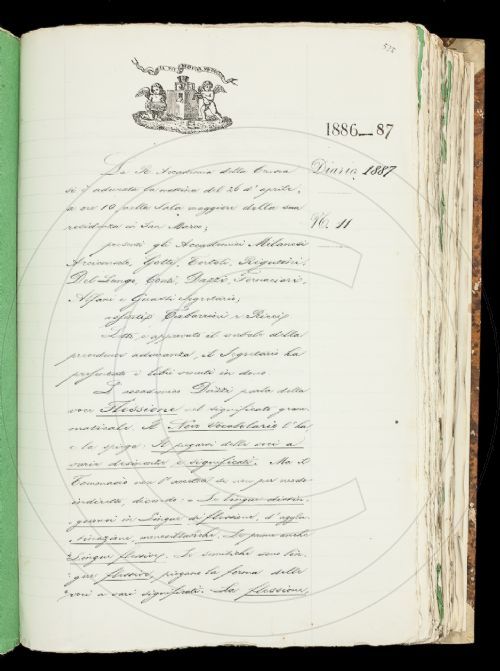 522
1886-87
Diario 1887
N. 11
La R. Accademia della Crusca
si è adunata la mattina del 26 d'aprile,
a ore 10 nella Sala maggiore della sua
residenza in San Marco;
presenti gli Accademici Milanesi
Arciconsolo, Gotti, Tortoli, Rigutini,
Del Lungo, Conti, Dazzi, Fornaciari,
Alfani e Guasti Segretario;
assenti Tabarrini e Ricci.
Letto e approvato il verbale della
precedente adunanza, il Segretario ha
presentato i libri venuti in dono.
L'accademico Dazzi parla della
voce Flessione nel significato gram-
maticale. Il Novo Vocabolario l'ha
e la spiega: Il piegarsi delle voci a
varie desinenze e significati. Ma il
Tommaseo non l'accetta se non per modo
indiretto, dicendo: Le lingue distin-
guonsi in Lingue di flessione, d'agglu-
tinazione, monosillabiche. Le prime anche
Lingue flessive. Le semitiche sono lin-
gue flessive, piegano la forma delle
voci a vari significati. La flessione,